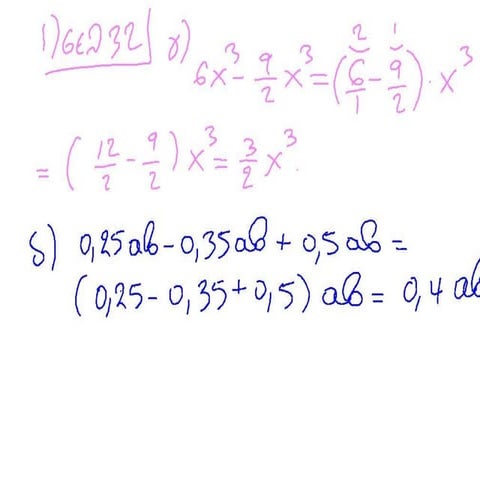 γ) 6x³ - 9/2 x³ = (6/1 - 9/2) · x³
= (12/2 - 9/2) x³ = 3/2 x³.
δ) 0,25αβ - 0,35αβ + 0,5αβ =
(0,25 - 0,35 + 0,5) αβ = 0,4 αβ